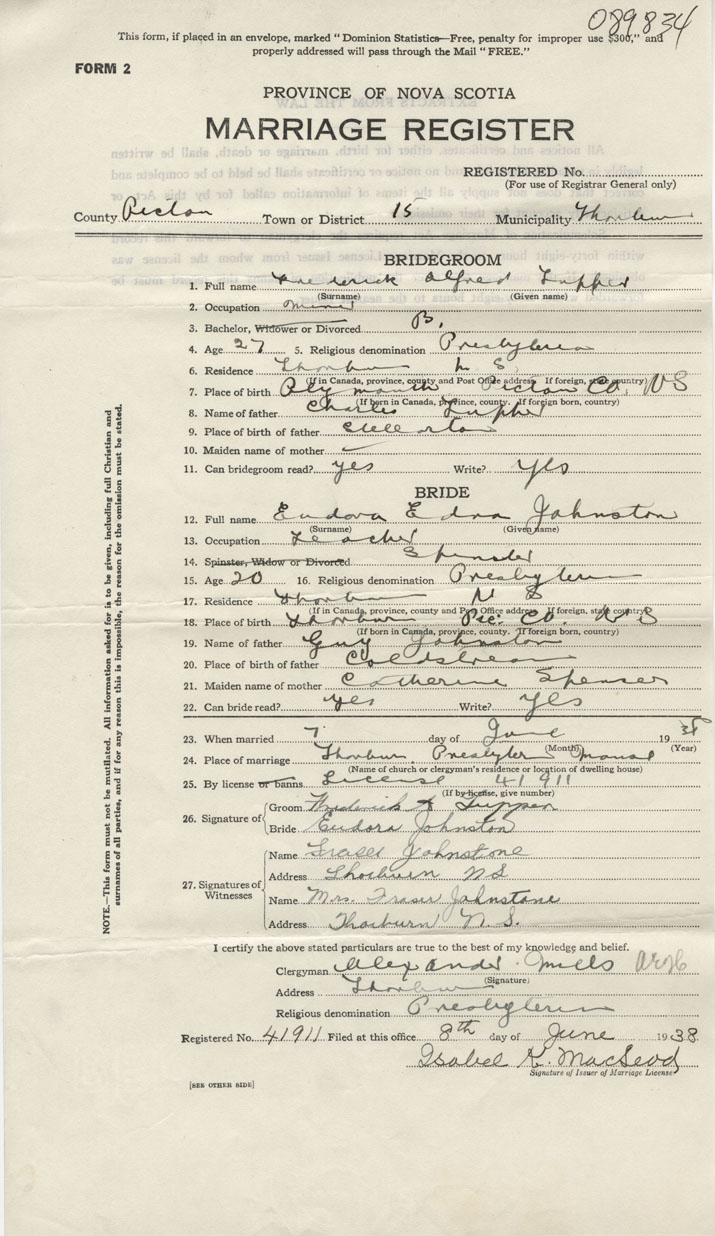 089834
This form, if placed in an envelope, marked "Dominion Statistics—Free, penalty for improper use $300," and
properly addressed will pass through the Mail "FREE."
FORM 2
PROVINCE OF NOVA SCOTIA
MARRIAGE REGISTER
REGISTERED No.
(For use of Registrar General only)
County Pictou Town or District 15 Municipality Thorburn
BRIDEGROOM
1. Full name Frederick Alfred Tupper
(Surname) (Given name)
2. Occupation Miner
3. Bachelor, Widower or Divorced B.
4. Age 27 5. Religious denomination Presbyterian
6. Residence Thorburn N S
(If in Canada, province, county and Post Office address. If foreign, state country)
7. Place of birth Plymouth Pictou Co. NS
(If born in Canada, province, county. If foreign born, country)
8. Name of father Charles Tupper
9. Place of birth of father Stellarton
10. Maiden name of mother
11. Can bridegroom read? yes Write? yes
BRIDE
12. Full name Eudora Edna Johnston
(Surname) (Given name)
13. Occupation Teacher
14. Spinster, Widow or Divorced Spinster
15. Age 20 16. Religious denomination Presbyterian
17. Residence Thorburn N S
(If in Canada, province, county and Post Office address. If foreign, state country)
18. Place of birth Thorburn Pic. Co. N S
(If born in Canada, province, county. If foreign born, country)
19. Name of father Guy Johnston
20. Place of birth of father Coldstream
21. Maiden name of mother Catherine Spenser
22. Can bride read? yes Write? yes
23. When married 7 day of June 19 38
(Month) (Year)
24. Place of marriage Thorburn Presbyterian Manse
(Name of church or clergyman's residence or location of dwelling house)
25. By license or banns License 41911
(If by license, give number)
26. Signature of Groom Frederick A Tupper
Bride Eudora Johnston
27. Signatures of Witnesses Name Fraser Johnstone
Address Thorburn NS
Name Mrs. Fraser Johnstone
Address Thorburn N.S.
I certify the above stated particulars are true to the best of my knowledge and belief.
Clergyman Alexander Mills
(Signature)
Address Thorburn
Religious denomination Presbyterian
Registered No. 41911 Filed at this office 8th day of June 1938
Isabel K. MacLeod
Signature of Issuer of Marriage License
[SEE OTHER SIDE]
NOTE.—This form must not be mutilated. All information asked for is to be given, including full Christian and
surnames of all parties, and if for any reason this is impossible, the reason for the omission must be stated.